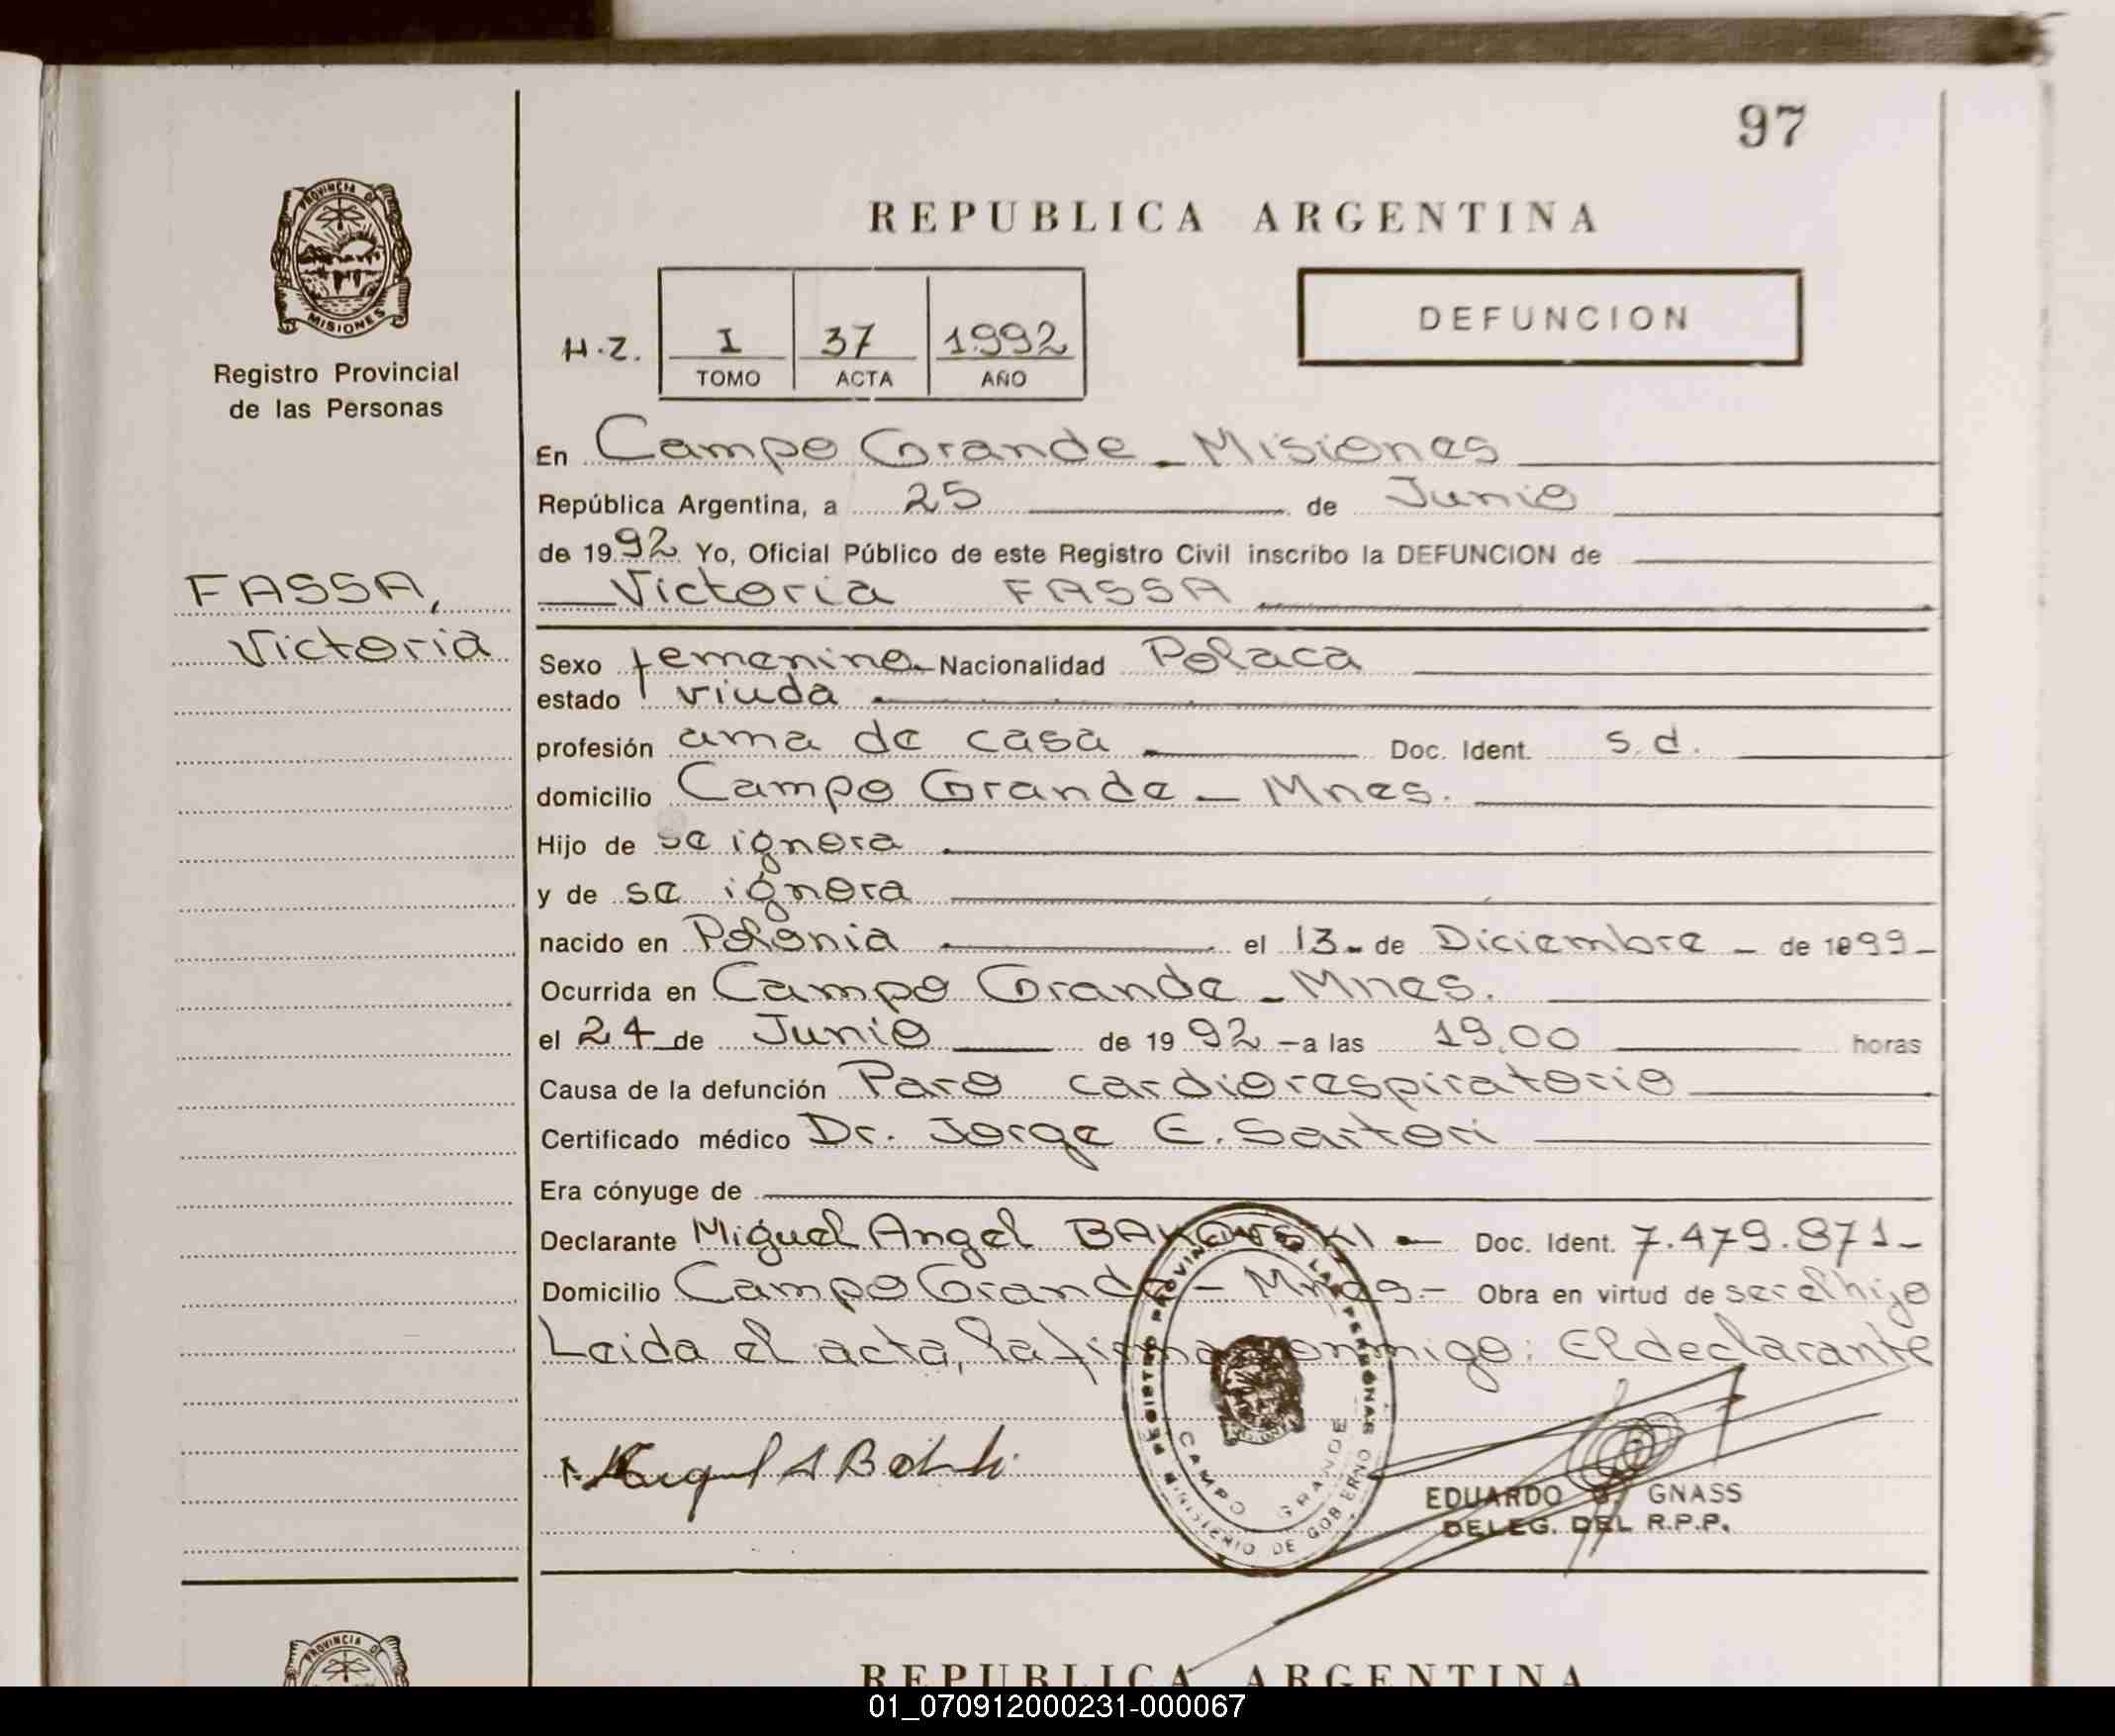 97
REPUBLICA ARGENTINA
PROVINCIA DE
MISIONES
Registro Provincial
de las Personas
H.Z.
I 37 1992
TOMO ACTA AÑO
DEFUNCION
En Campo Grande - Misiones
República Argentina, a 25 de Junio
de 1992 Yo, Oficial Público de este Registro Civil inscribo la DEFUNCION de
FASSA,
Victoria
Victoria FASSA
Sexo femenino Nacionalidad Polaca
estado viuda
profesión ama de casa Doc. Ident. s.d.
domicilio Campo Grande - Mnes.
Hijo de se ignora
y de se ignora
nacido en Polonia el 13- de Diciembre - de 1899-
Ocurrida en Campo Grande - Mnes.
el 24 de Junio de 1992 - a las 19,00 horas
Causa de la defunción Paro cardiorespiratorio
Certificado médico Dr. Jorge E. Sartori
Era cónyuge de
Declarante Miguel Angel BAKOWSKI - Doc. Ident. 7.479.871-
Domicilio Campo Grande - Mnes.- Obra en virtud de ser el hijo
Leida el acta, la firma conmigo: El declarante
REGISTRO PROVINCIAL DE LAS PERSONAS
MINISTERIO DE GOBIERNO
CAMPO GRANDE
EDUARDO G. GNASS
DELEG. DEL R.P.P.
PROVINCIA DE
REPUBLICA ARGENTINA
01_070912000231-000067